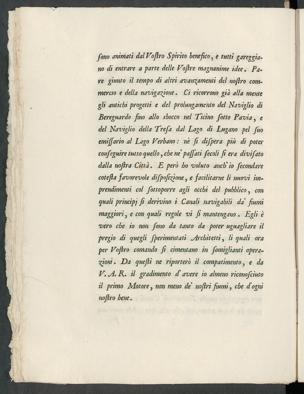 sono animati dal Vostro Spirito benefico, e tutti gareggia-
no di entrare a parte delle Vostre magnanime idee. Pa-
re giunto il tempo di altri avanzamenti del nostro com-
mercio e della navigazione. Ci ricorrono già alla mente
gli antichi progetti e del prolungamento del Naviglio di
Bereguardo fino allo sbocco nel Ticino sotto Pavia, e
del Naviglio della Tresa dal Lago di Lugano pel suo
emissario al Lago Verbano: nè si dispera più di poter
conseguire tutto quello, che ne' passati secoli si era divisato
dalla nostra Città. E però ho voluto anch'io secondare
cotesta favorevole disposizione, e facilitarne li nuovi im-
prendimenti col sottoporre agli occhi del pubblico, con
quali principj si derivino i Canali navigabili da' fiumi
maggiori, e con quali regole vi si mantengano. Egli è
vero che io non sono da tanto da poter uguagliare il
pregio di quegli sperimentati Architetti, li quali ora
per Vostro comando si cimentano in somiglianti opera-
zioni. Da questi ne riporterò il compatimento, e da
V. A. R. il gradimento d'avere io almeno riconosciuto
il primo Motore, non meno de' nostri fiumi, che d'ogni
nostro bene.